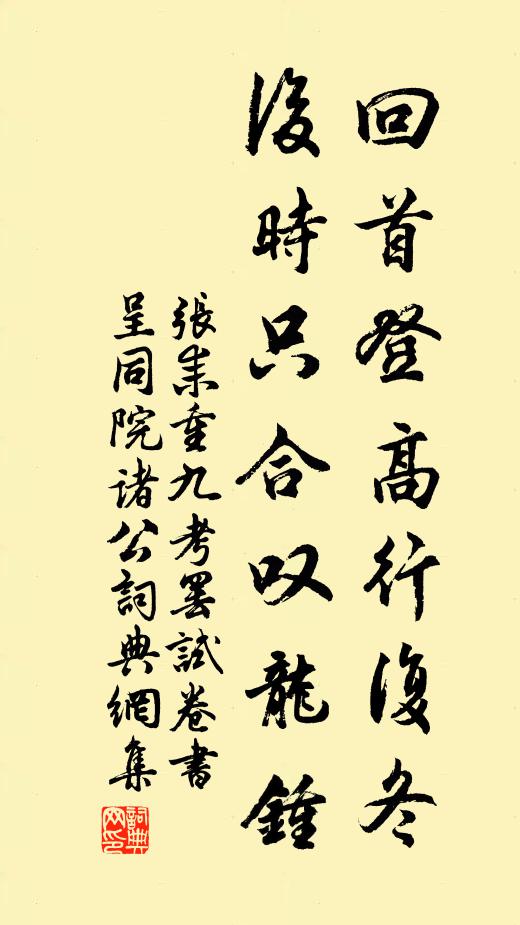 回首登高行復冬
後時只合叹龍鍾
張耒重九考罢試卷書
呈同院诸公詞典網集
詞典
网印